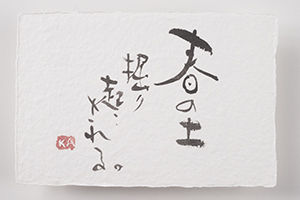 春の土
掘り
起こ
される。